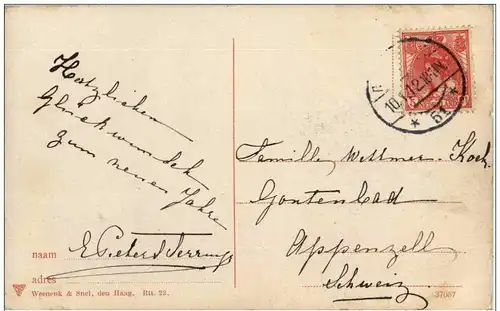 Herzlichen
Glückwunsch
zum neuen Jahre
naam
adres
Weenenk & Snel, den Haag, Rtt. 22.
Familie Wettmer-Koch
Gontenbad
Appenzell
Schweiz
37057